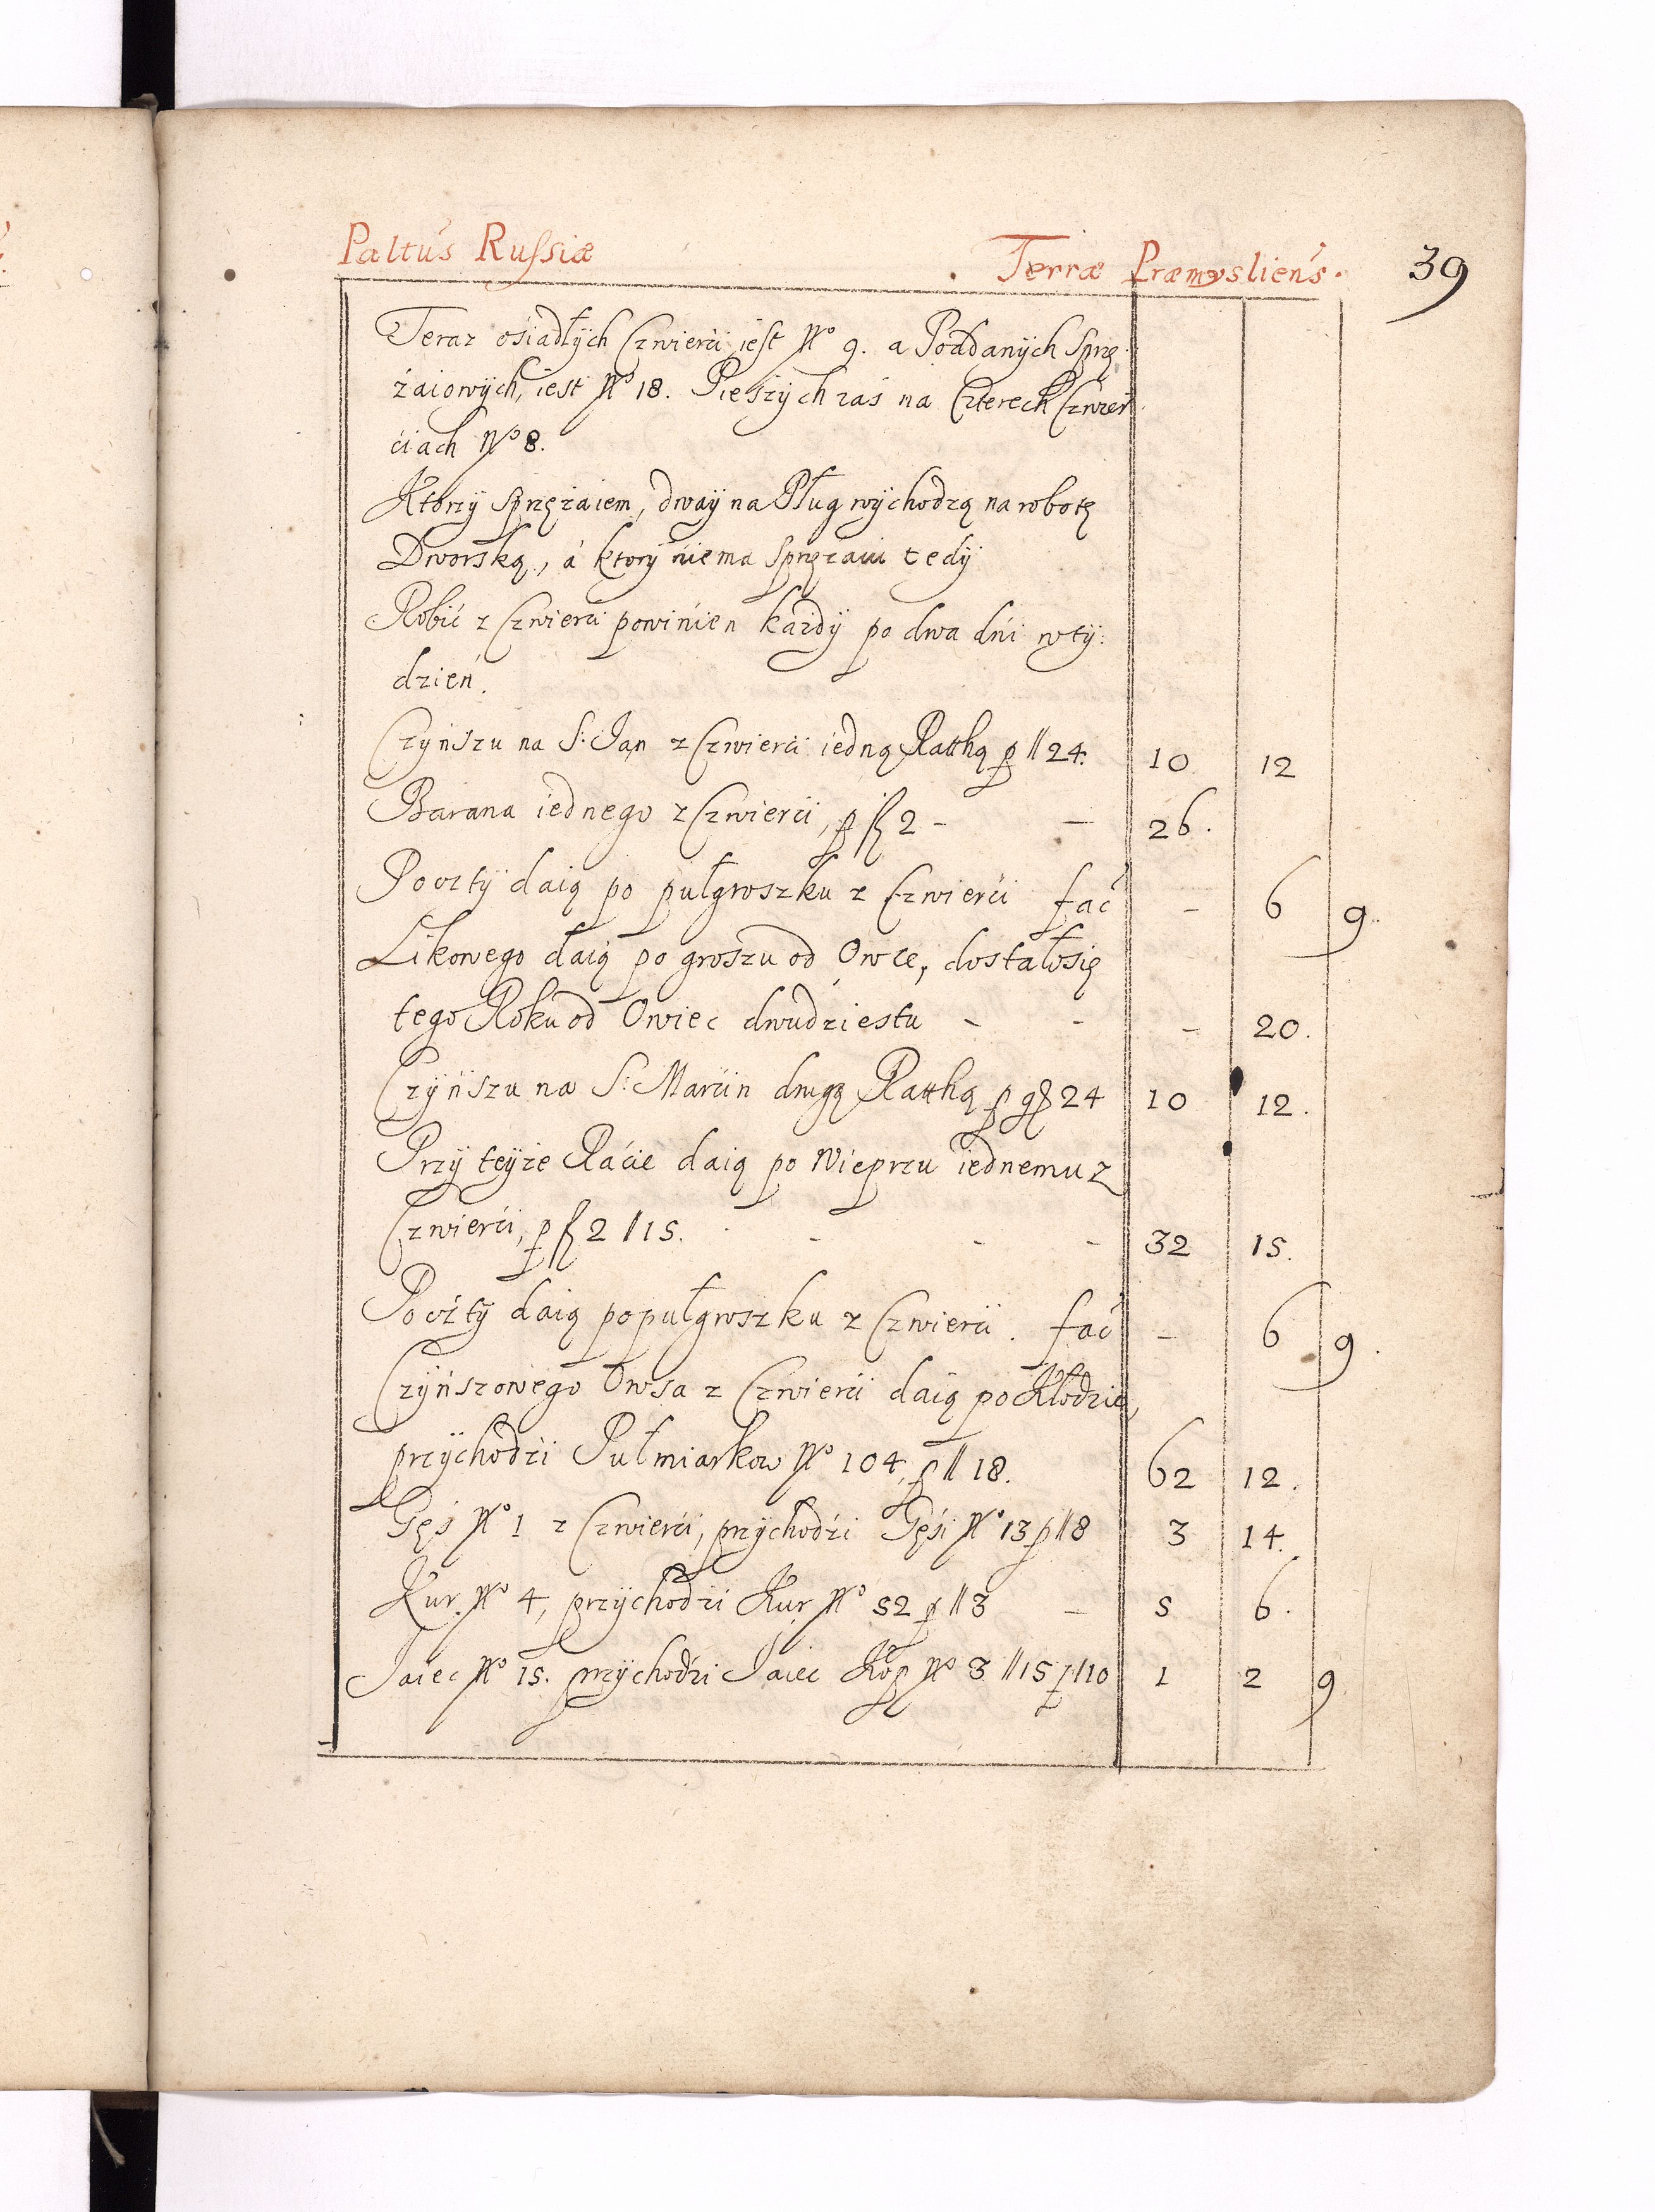 Paltus Russiæ Terræ Præmysliens. 39
Teraz ośiadłych Czwierći iest No 9. a Poddanych Sprzę
żaiowych, iest No 18. Pieszych zaś na Czterech Czwier
ciach No 8.
Ktorzy sprzężaiem, dway na Pług wychodzą na robotę
Dworską, á ktory niema Sprzężaiu tedy
Robić z Czwierći powinien każdy po dwa dńi w ty:
dzień.
Czynszu na S: Jan z Czwierći iedną Ratthą p // 24. 10 12
Barana iednego z Czwierći, p fl 2 - - 26.
Poczty daią po pułgroszku z Czwierći fać - 6 9.
Likowego daią po groszu od Owce, dostałosię
tego Roku od Owiec dwudziestu - - - 20.
Czynszu na S: Marćin drugą Ratthą p gr 24 10 12.
Przy teyże Raćie daią po Wieprzu iednemu z
Czwierći, p fl 2 // 15. - - - 32 15.
Poczty daią po pułgroszku z Czwierći. fać - 6 9.
Czynszowego Owsa z Czwierći daią po Kłodzie,
przychodźi Pułmiarkow No 104, p // 18. 62 12.
Gęś No 1 z Czwierći, przychodźi Gęśi No 13 p // 8 3 14.
Kur. No 4, przychodźi Kur No 52 p // 3 - 5 6.
Jaiec No 15. przychodźi Jaiec Kop No 3 // 15 p // 10 1 2 9